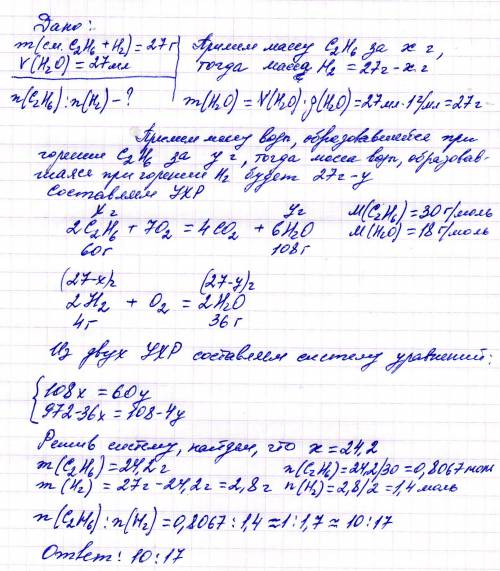 Дано:
m(см. C₂H₆ + H₂) = 27г
V(H₂O) = 27мл
n(C₂H₆) : n(H₂) - ?
Примем массу C₂H₆ за x г,
тогда масса H₂ = 27г - x г
m(H₂O) = V(H₂O)·ρ(H₂O) = 27мл·1г/мл = 27г
Примем массу воды, образовавшейся при
горении C₂H₆ за y г, тогда масса воды, образовав-
шаяся при горении H₂ будет 27г - y
Составляем УХР
xг yг
2C₂H₆ + 7O₂ = 4CO₂ + 6H₂O
60г 108г
M(C₂H₆) = 30г/моль
M(H₂O) = 18г/моль
(27-x)г (27-y)г
2H₂ + O₂ = 2H₂O
4г 36г
Из двух УХР составляем систему уравнений:
{108x = 60y
972-36x = 108-4y
Решив систему, найдём, что x = 24,2
m(C₂H₆) = 24,2г n(C₂H₆) = 24,2/30 = 0,8067 моль
m(H₂) = 27г - 24,2г = 2,8г n(H₂) = 2,8/2 = 1,4 моль
n(C₂H₆) : n(H₂) = 0,8067 : 1,4 ≈ 1:1,7 ≈ 10:17
Ответ: 10:17